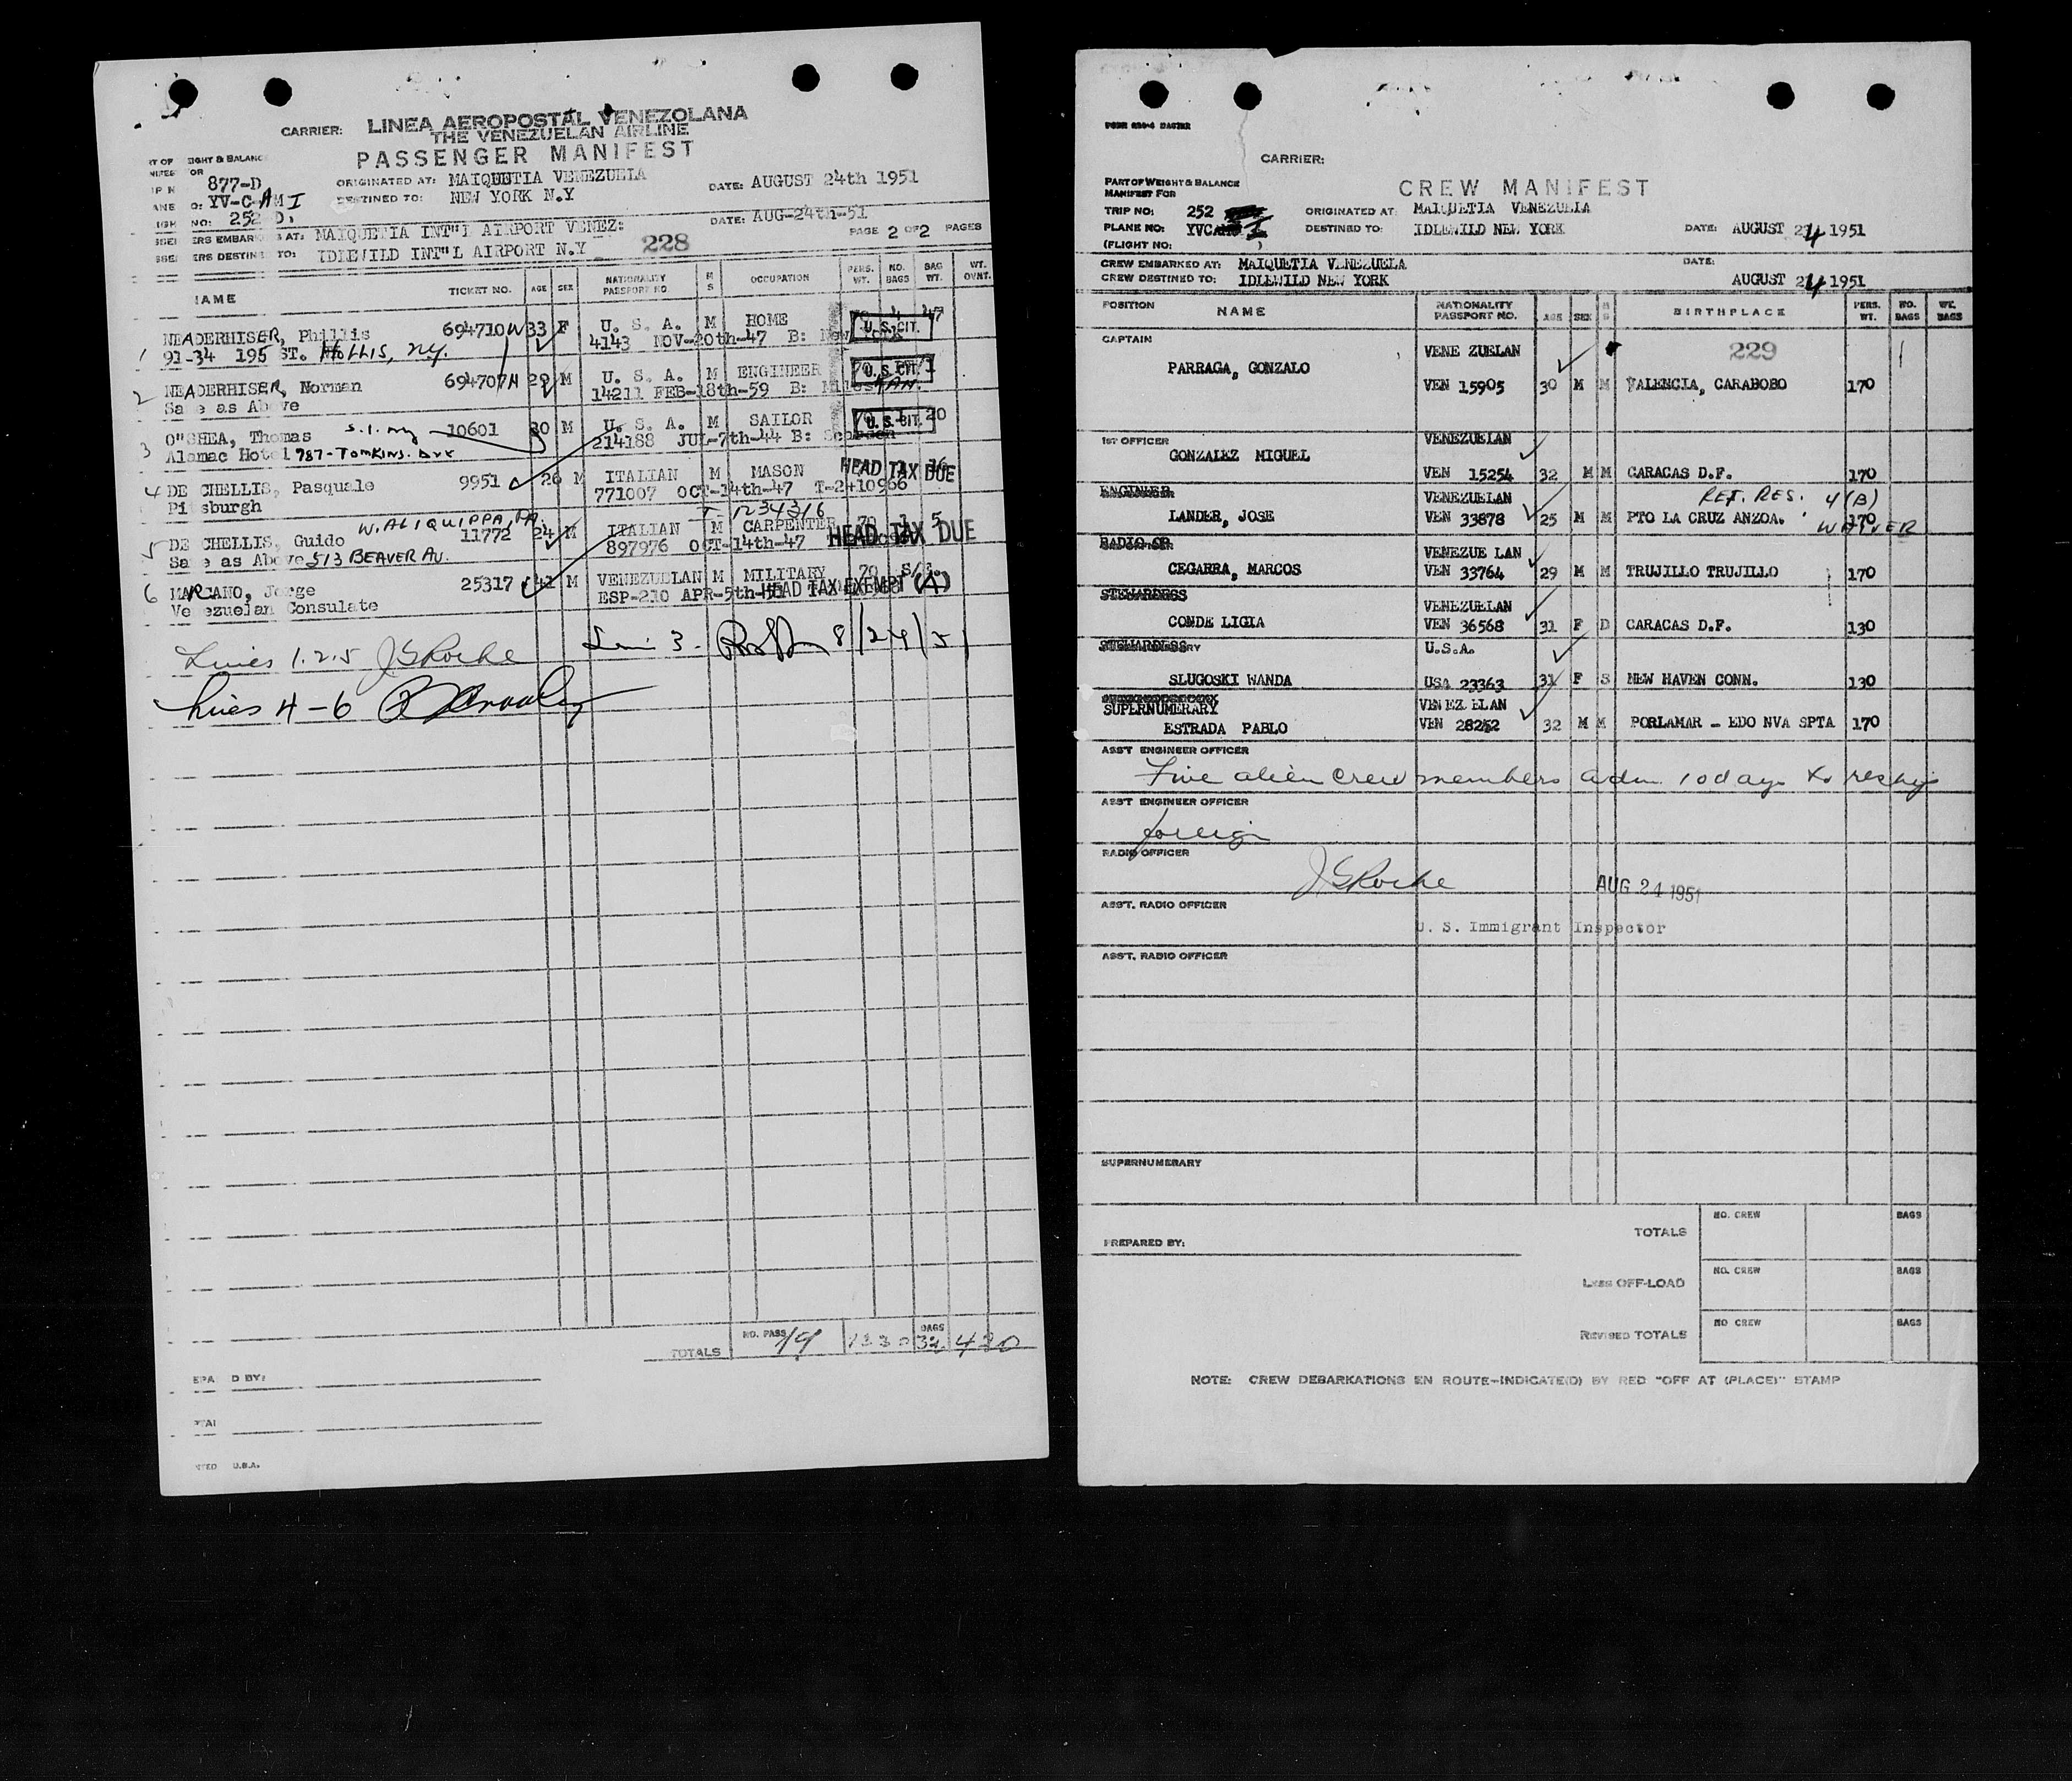 CARRIER: LINEA AEROPOSTAL VENEZOLANA
THE VENEZUELAN AIRLINE
PASSENGER MANIFEST
877-D ORIGINATED AT: MAIQUETIA VENEZUELA DATE: AUGUST 24th 1951
YV-C-AMI DESTINED TO: NEW YORK N.Y
NO: 252 D,
AT: MAIQUETIA INT"L AIRPORT VENEZ: DATE: AUG-24th-51
TO: IDLEWILD INT"L AIRPORT N.Y 228 PAGE 2 OF 2 PAGES
NAME TICKET NO. AGE SEX NATIONALITY PASSPORT NO. M S OCCUPATION PERS. WT. NO. BAGS BAG WT. WT. OVNT.
NEADERHISER, Phillis 694710W 33 F U. S. A. M HOME 4 47 U.S.CIT.
1 91-34 195 ST. HOLLIS, N.Y. 4143 NOV-20th-47 B: New York
2 NEADERHISER, Norman 694707H 29 M U. S. A. M ENGINEER U.S.CIT.
Same as Above 14211 FEB-18th-59 B:
3 O"SHEA, Thomas S.I. NY 10601 30 M U. S. A. M SAILOR 70 1 20 U.S.CIT.
Alamac Hotel 787-TOMKINS. AVE 214188 JUL-7th-44 B:
4 DE CHELLIS, Pasquale 9951 26 M ITALIAN M MASON HEAD TAX DUE
Pittsburgh 771007 OCT-14th-47 T-2410966
W. ALIQUIPPA, PA. T-1234316
5 DE CHELLIS, Guido 11772 24 M ITALIAN M CARPENTER 70 1 5 HEAD TAX DUE
Same as Above 513 BEAVER AV. 897976 OCT-14th-47
6 MARCANO, Jorge 25317 41 M VENEZUELAN M MILITARY 70 S/B.
Venezuelan Consulate ESP-210 APR-5th- HEAD TAX EXEMPT (A)
Lines 1.2.5 JGRoche 3. 8/24/51
Lines 4-6
TOTALS NO. PASS 19 1330 BAGS 32 420
D BY:
U.S.A.
CARRIER:
PART OF WEIGHT & BALANCE
MANIFEST FOR
CREW MANIFEST
TRIP NO: 252 ORIGINATED AT: MAIQUETIA VENEZUELA
PLANE NO: YVC I DESTINED TO: IDLEWILD NEW YORK DATE: AUGUST 24 1951
(FLIGHT NO: )
CREW EMBARKED AT: MAIQUETIA VENEZUELA DATE:
CREW DESTINED TO: IDLEWILD NEW YORK AUGUST 24 1951
POSITION NAME NATIONALITY PASSPORT NO. AGE SEX M S BIRTHPLACE PERS. WT. NO. BAGS WE. BAGS
CAPTAIN VENE ZUELAN 229
PARRAGA, GONZALO VEN 15905 30 M M VALENCIA, CARABOBO 170
1ST OFFICER VENEZUELAN
GONZALEZ MIGUEL VEN 15254 32 M M CARACAS D.F. 170
ENGINEER VENEZUELAN RET. RES. 4(B)
LANDER, JOSE VEN 33878 25 M M PTO LA CRUZ ANZOA. 170 WAIVER
RADIO OP VENEZUE LAN
CEGARRA, MARCOS VEN 33764 29 M M TRUJILLO TRUJILLO 170
STEWARDESS VENEZUELAN
CONDE LIGIA VEN 36568 31 F D CARACAS D.F. 130
STEWARDESS U.S.A.
SLUGOSKI WANDA USA 23363 31 F S NEW HAVEN CONN. 130
SUPERNUMERARY VENEZ ELAN
ESTRADA PABLO VEN 28252 32 M M PORLAMAR - EDO NVA SPTA 170
ASST ENGINEER OFFICER
Five alien crew members adm 10 days to reship
ASST ENGINEER OFFICER
foreign
RADIO OFFICER
JGRoche AUG 24 1951
ASST. RADIO OFFICER
U. S. Immigrant Inspector
ASST. RADIO OFFICER
SUPERNUMERARY
TOTALS NO. CREW BAGS
PREPARED BY:
LESS OFF-LOAD NO. CREW BAGS
REVISED TOTALS NO CREW BAGS
NOTE: CREW DEBARKATIONS EN ROUTE-INDICATE(D) BY RED "OFF AT (PLACE)" STAMP